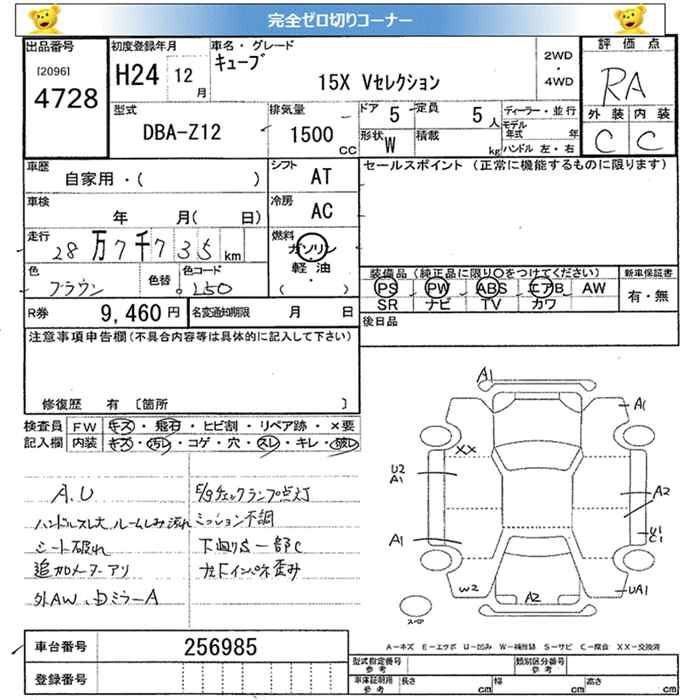 完全ゼロ切りコーナー
出品番号
[2096]
4728
初度登録年月
H24 12 月
車名・グレード
キューブ
15X Vセレクション
2WD
・
4WD
評価点
RA
外装 内装
C C
型式
DBA-Z12
排気量
1500 CC
ドア 5
定員 5 人
形状 W
積載 kg
ディーラー・並行
モデル年式 年
ハンドル 左・右
車歴
自家用・( )
シフト AT
車検
年 月( 日)
冷房 AC
走行
28万7千735km
燃料
ガソリン
軽油
( )
色
ブラウン
色替
色コード
L50
R券 9,460 円
名変通知期限 月 日
セールスポイント (正常に機能するものに限ります)
装備品 (純正品に限り○をつけてください)
PS PW ABS エアB AW
SR ナビ TV カワ
新車保証書
有・無
後日品
注意事項申告欄(不具合内容等は具体的に記入して下さい)
修復歴 有 〔箇所 〕
検査員記入欄
FW キズ・飛石・ヒビ割・リペア跡・×要
内装 キズ・汚レ・コゲ・穴・スレ・キレ・破レ
A.U
ハンドルスレ大 ルームしみ 汚れ
シート破れ
追加メーターアリ
外AW、
ミラーA
E/gチェックランプ点灯
ミッション不調
下廻りS一部C
歪み
A1
A1
XX
U2
A1
A2
A1
U1
C1
W2
A2
UA1
スペア
A－キズ E－エクボ U－凹み W－補修跡 S－サビ C－腐食 XX－交換済
車台番号 256985
登録番号
型式指定番号
参考
類別区分番号
参考
車庫証明用
参考
長さ cm
幅 cm
高さ cm